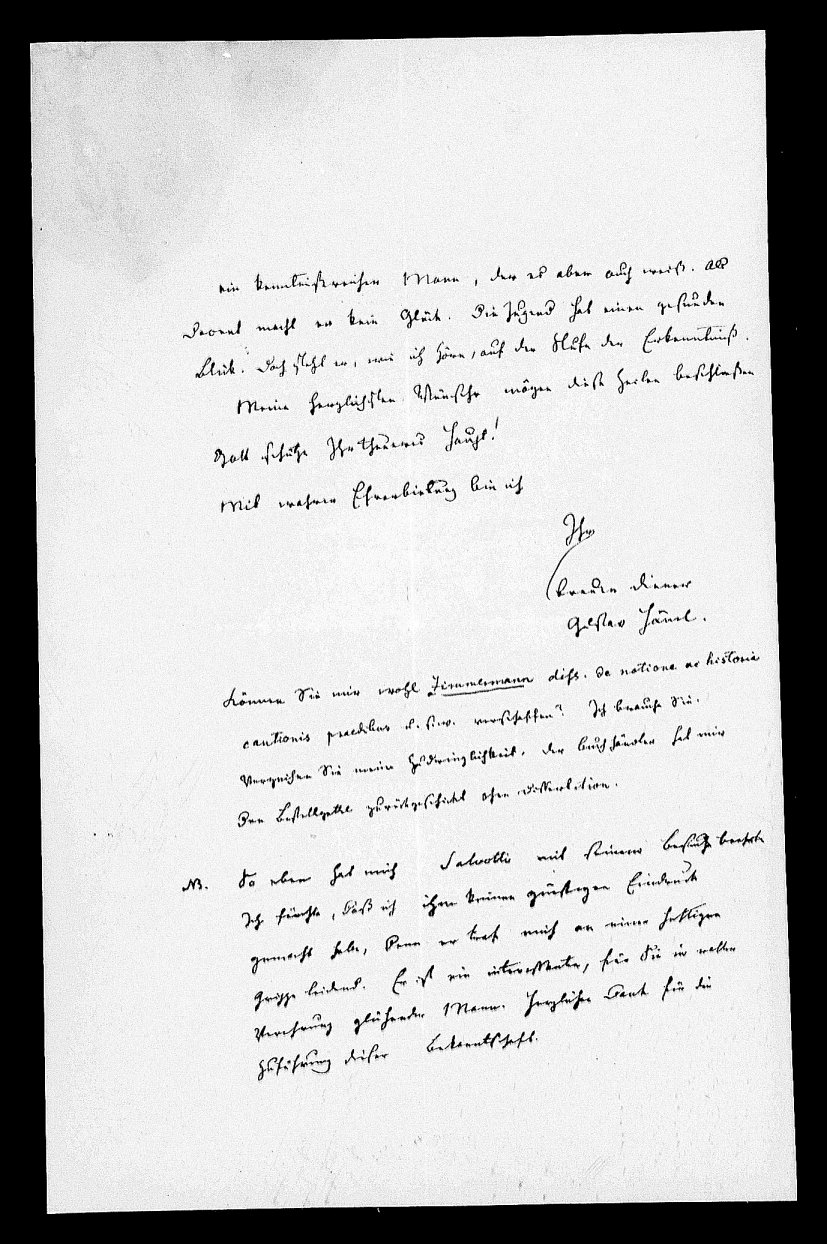 ein kenntnißreicher Mann, der es aber auch weiß. Als
Docent macht er kein Glück. Die Jugend hat einen gesunden
Blick. Doch steht er, wie ich höre, auf der Stufe der Erkenntniß.
Meine herzlichsten Wünsche mögen diese Zeilen beschließen
Gott schütze Ihr theueres Haupt!
Mit wahrer Ehrerbietung bin ich
Ihr
treuer Diener
Gustav Hänel.
Können Sie mir wohl Zimmermann diss. de notione ac historia
cautionis praedibus u.s.w. verschaffen? Ich brauche sie.
Verzeihen Sie meine Zudringlichkeit. Der Buchhändler hat mir
den Bestellzettel zurückgeschickt ohne Dissertation.
NB. So eben hat mich Salvotti mit seinem Besuche beehrt
Ich fürchte, daß ich ihm keinen günstigen Eindruck
gemacht habe, denn er traf mich an einer heftigen
Grippe leidend. Er ist ein interessanter, für Sie in voller
Verehrung glühender Mann. Herzlichen Dank für die
Zuführung dieser Bekanntschaft.